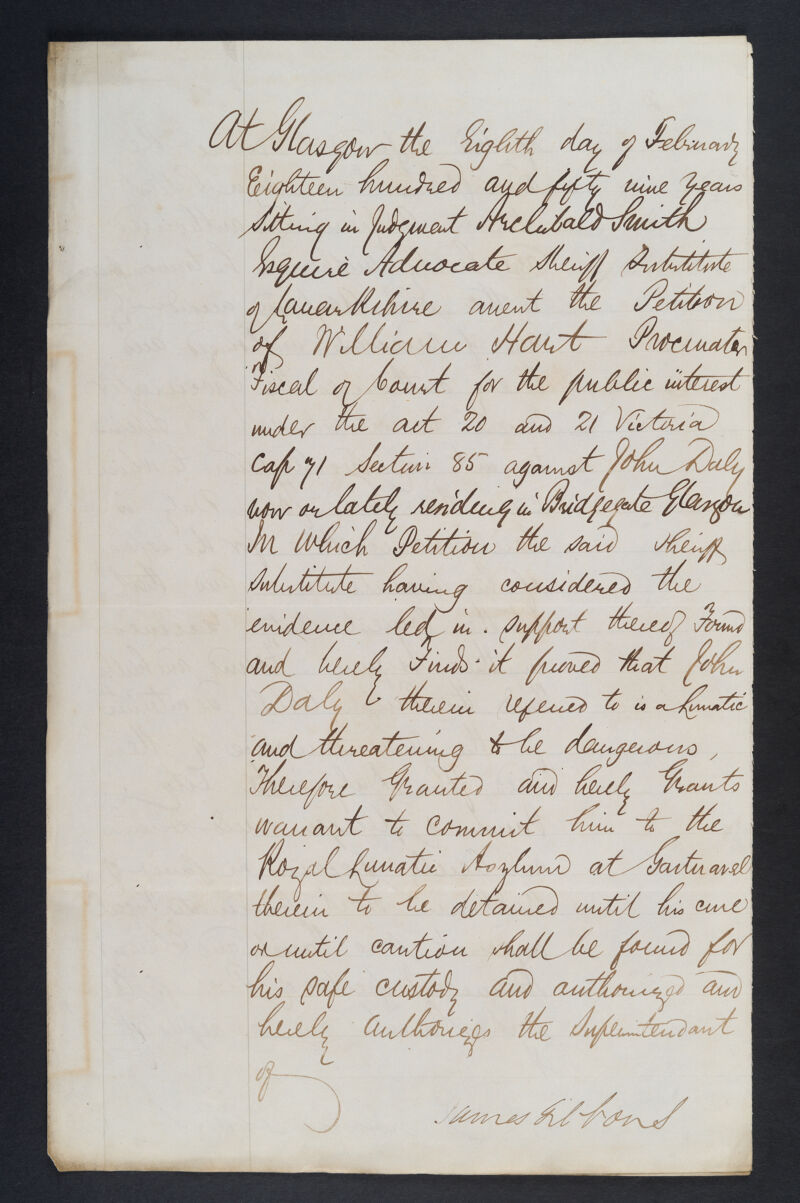 At Glasgow the Eighth day of February
Eighteen hundred and fifty nine years
Sitting in Judgment Archibald Smith
Esquire Advocate Sheriff Substitute
of Lanarkshire anent the Petition
of William Hart Procurator
Fiscal of Court for the public interest
under the act 20 and 21 Victoria
Cap 71 Section 85 against John Daly
now or lately residing in Bridgegate Glasgow
In which Petition the said Sheriff
Substitute having considered the
evidence led in support thereof Found
and hereby Finds it proved that John
Daly therein referred to is a Lunatic
and threatening to be dangerous,
Therefore Granted and hereby Grants
warrant to commit him to the
Royal Lunatic Asylum at Gartnavel
therein to be detained until his cure
or until caution shall be found for
his safe custody and authorized and
hereby authorizes the Superintendant
of
James Gibbons